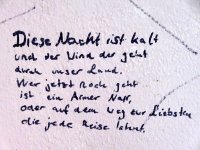 Diese Nacht ist kalt
und der Wind der geht
durch unser Land.
Wer jetzt noch geht
ist ein Armer Narr,
oder auf dem Weg zur Liebsten
die jede Reise lohnt.